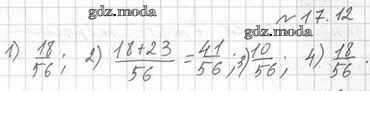 gdz.moda
№ 17.12
1) 18/56; 2) (18+23)/56 = 41/56; 3) 10/56; 4) 18/56.
gdz.moda